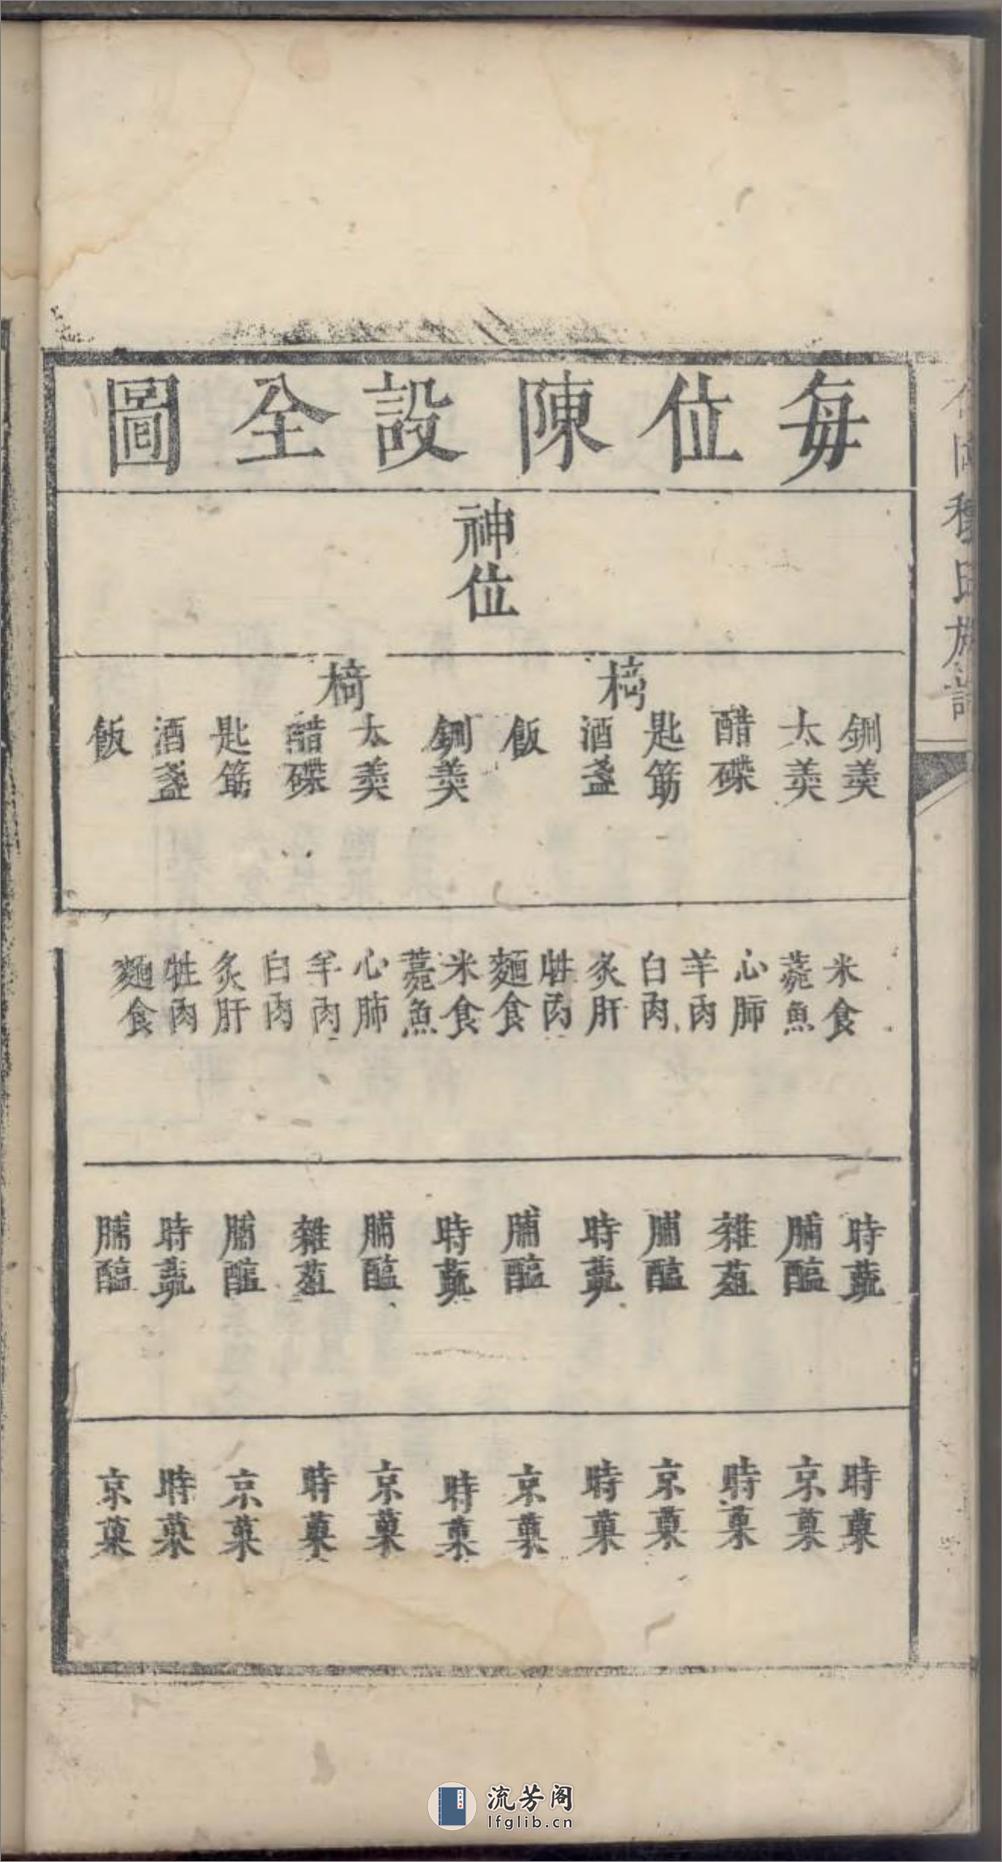 每位陳設全圖
神位
椅 椅
鉶羹 太羹 醋碟 匙筯 酒盞 飯 鉶羹 太羹 醋碟 匙筯 酒盞 飯
米食 薧魚 心肺 羊肉 白肉 炙肝 牲肉 麵食 米食 薧魚 心肺 羊肉 白肉 炙肝 牲肉 麵食
時蔬 脯醢 雜葅 脯醢 時蔬 脯醢 時蔬 脯醢 雜葅 脯醢 時蔬 脯醢
時菓 京菓 時菓 京菓 時菓 京菓 時菓 京菓 時菓 京菓 時菓 京菓
氏族譜
流芳阁
lfglib.cn